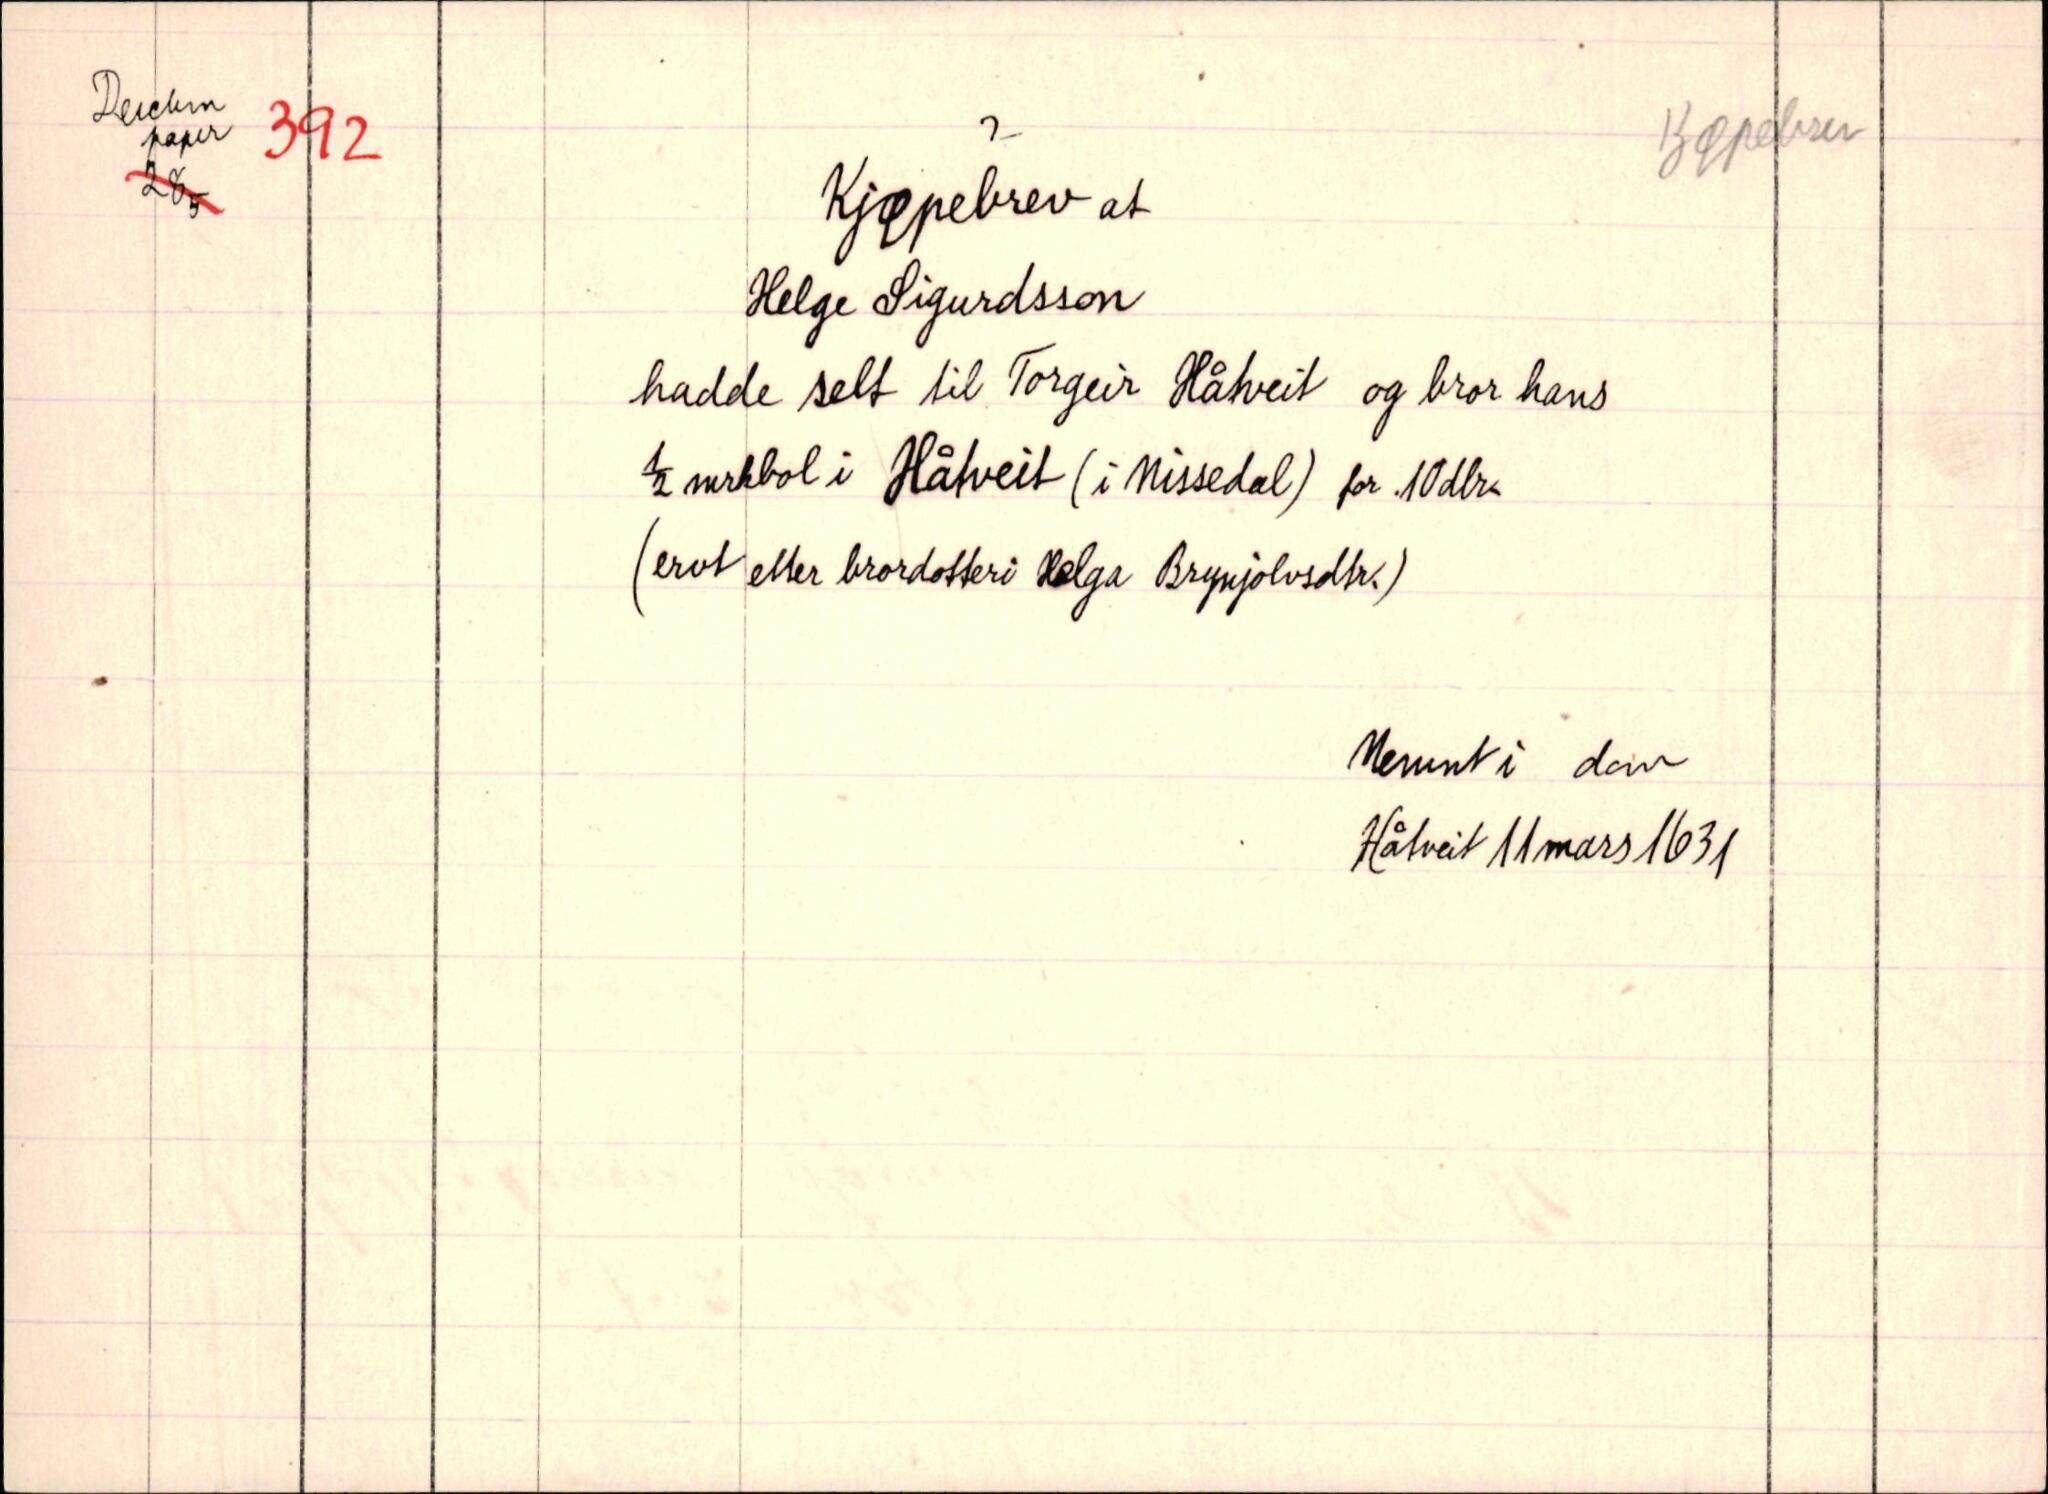 Deichm
papir
392
28
5
?
Kjøpebrev
Kjøpebrev at
Helge Sigurdsson
hadde selt til Torgeir Håtveit og bror hans
1/2 mrkbol i Håtveit (i Nissedal) for 10 dlr.
(ervt etter brordotteri Helga Brynjolvsdtr.)
Nemnt i dom
Håtveit 11 mars 1631